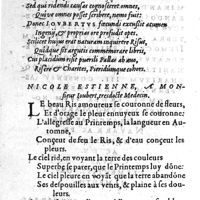 Sed quid ridendi causas cognosceret omnes,
Qui ve omneis posset scribere, nemo fuit:
Donec IOVBERTVS fœcundi excusit acumen
Ingenij, & proprias ore profudit opes.
Scilicet huius erat naturam inquirere Risus,
Quidque sit arguteis commemorare libris,
Cui placidum risit pueri Pallas ab ann
Risit & Charites, Pieridumque cohors.
NICOLE ESTIENNE, A MON-
sieur Joubert, tresdocte Medecin.
LE beau Ris amoureux se couronne de fleurs,
Et d'orage le pleur ennuyeux se couronne:
L'allegresse au Printemps, la langueur en Au-
tonne,
Conçeut de feu le Ris, & d'eau conçeut les
pleurs.
Le ciel rid, en voyant la terre des couleurs
Superbe se parer, que le Printemps luy dône:
Le ciel pleure en voyāt que la terre abandône
Ses despouilles aux vents, & plaine à ses dou-
leurs.